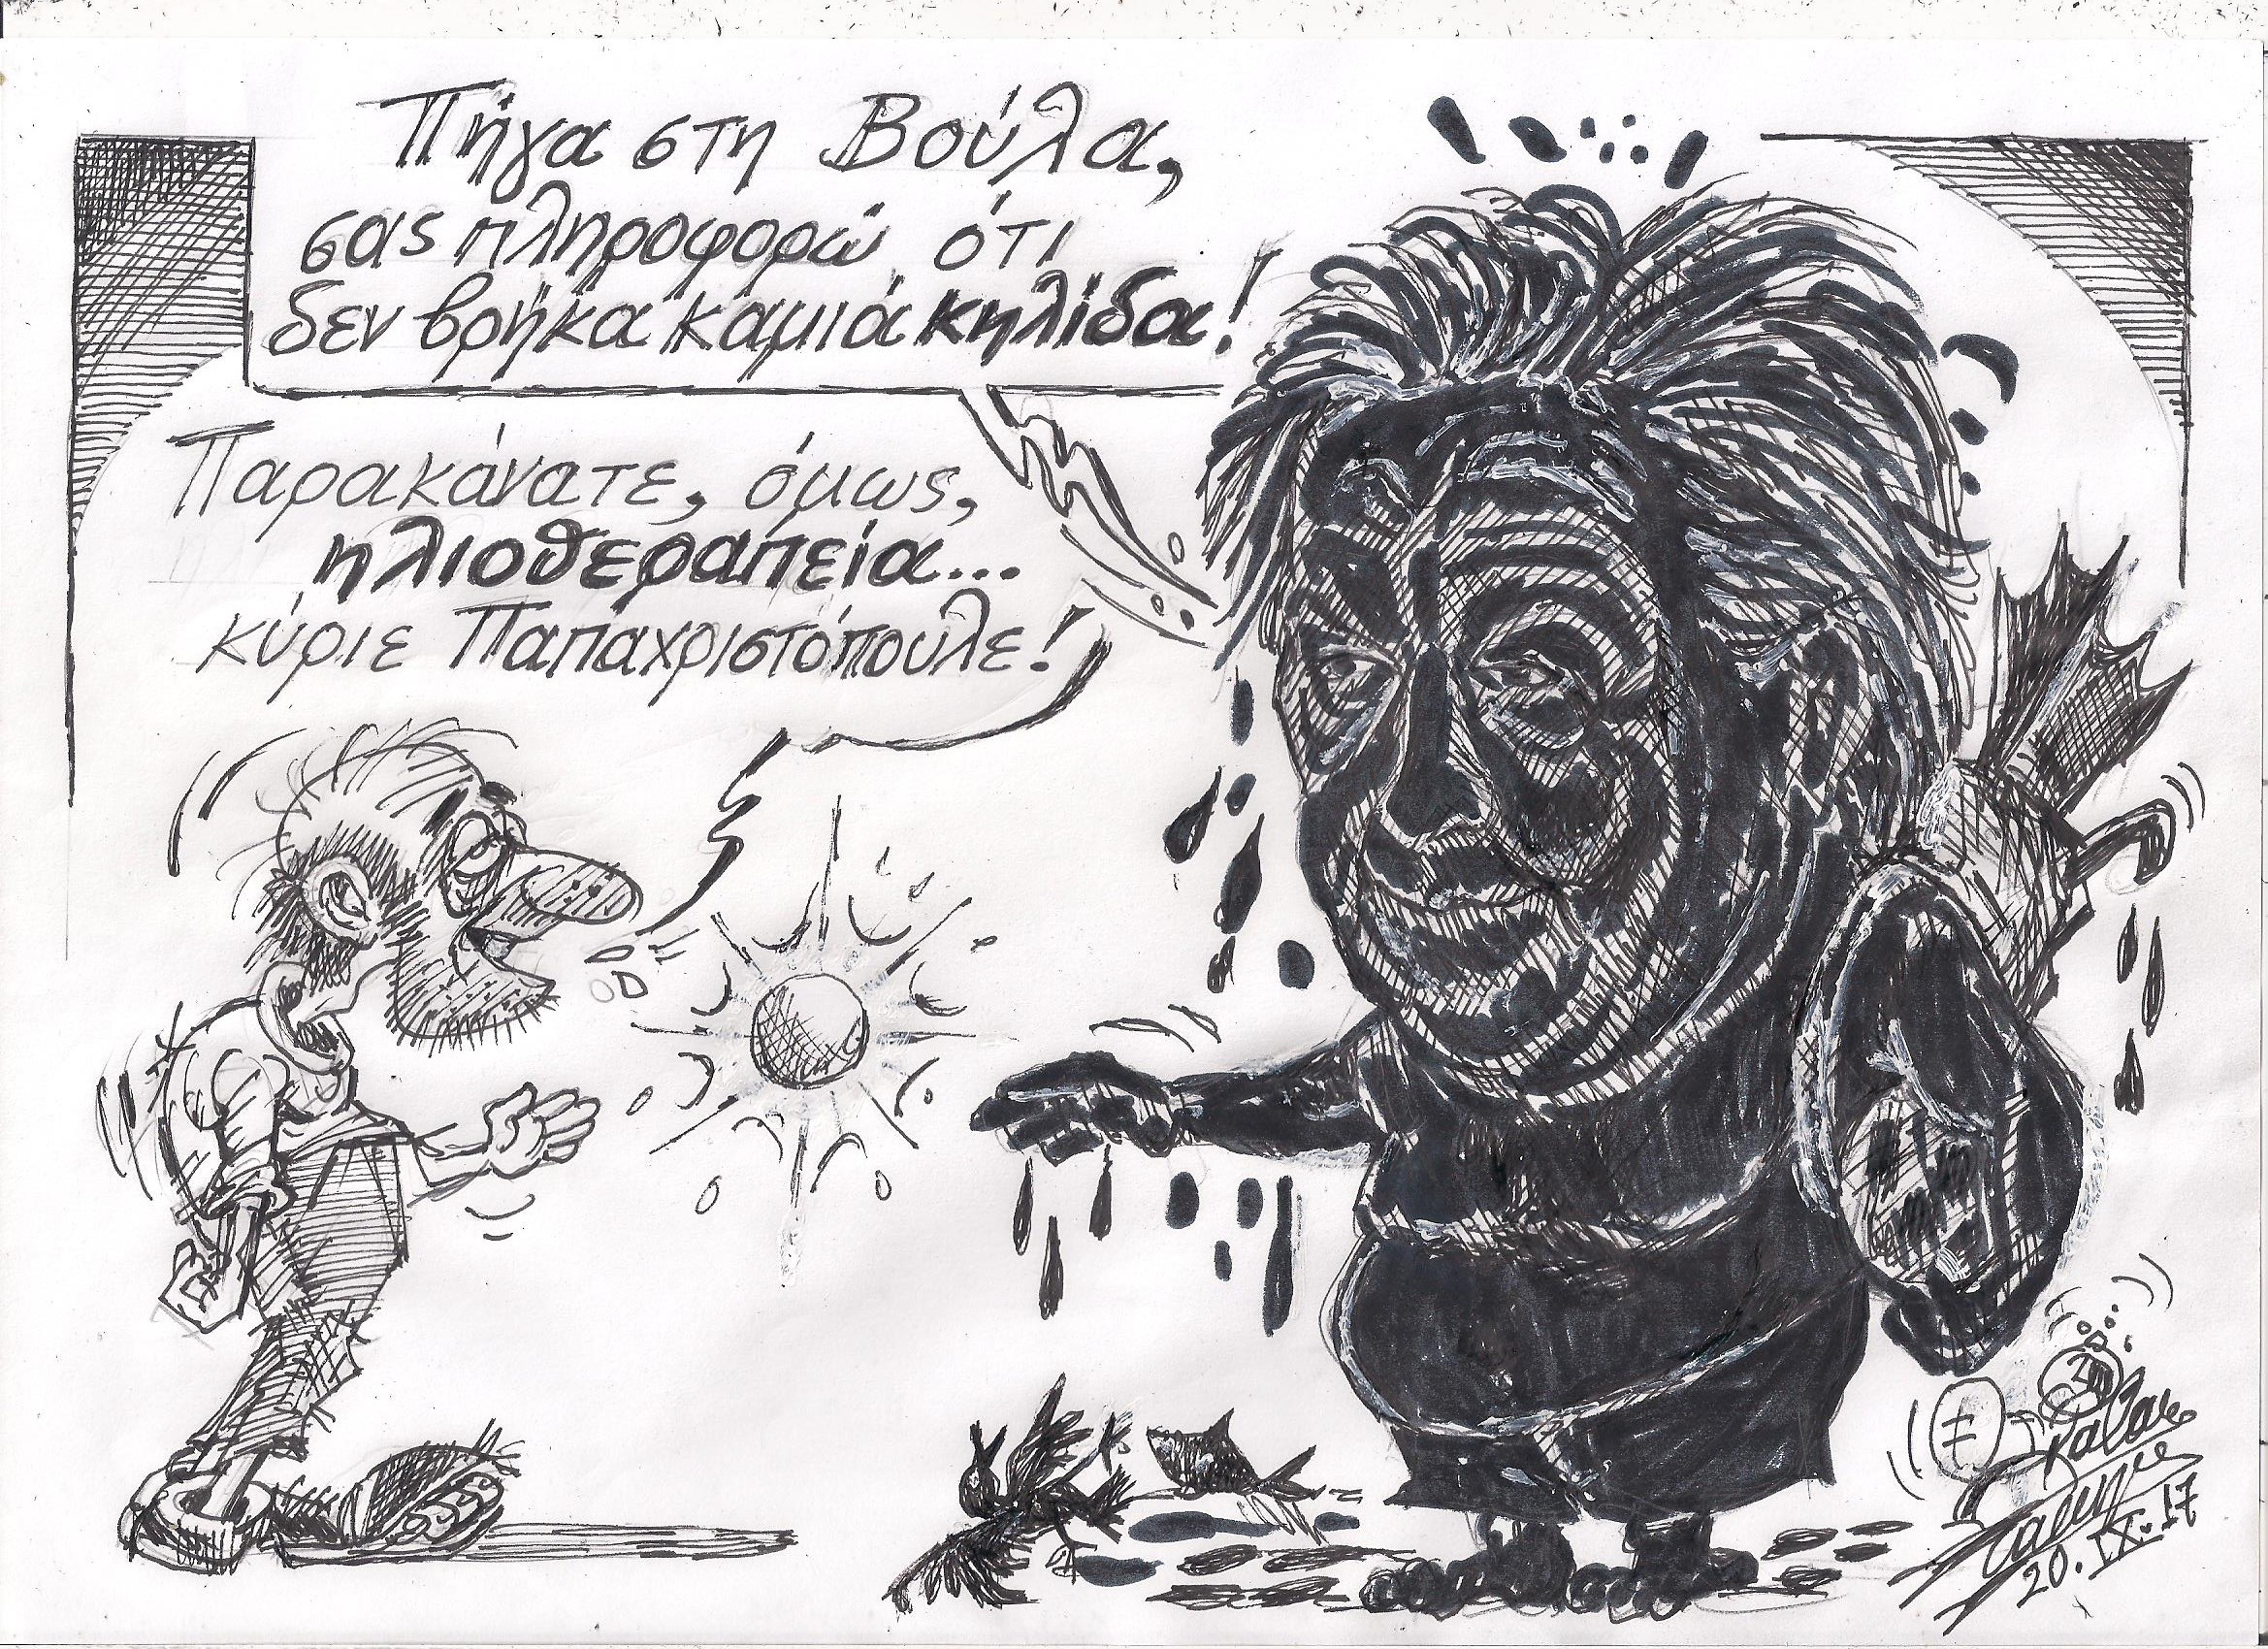 Πήγα στη Βούλα,
σας πληροφορώ, ότι
δεν βρήκα καμιά κηλίδα!
Παρακάνατε, όμως,
ηλιοθεραπεία...
κύριε Παπαχριστόπουλε!
20.IX.17